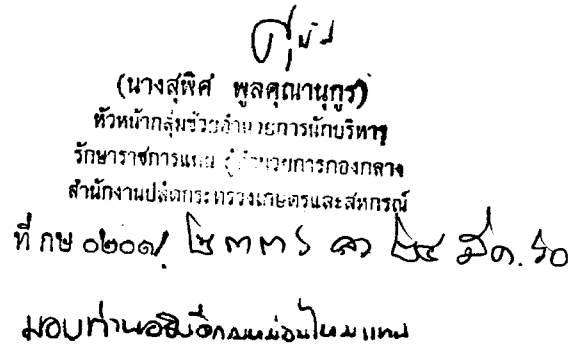 (นางสุพิศ พูลคุณานุกูร)
หัวหน้ากลุ่มช่วยอำนวยการนักบริหาร
รักษาราชการแทน ผู้อำนวยการกองกลาง
สำนักงานปลัดกระทรวงเกษตรและสหกรณ์
ที่ กษ ๐๒๐๑/ ๒๓๓๖ ๒๔ มี.ค. ๖๐
มอบท่านอธิบดีกรมหม่อนไหมแทน